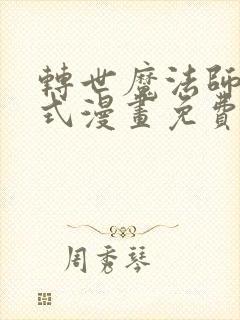 轉世魔法師
式漫畫免費
周秀琴